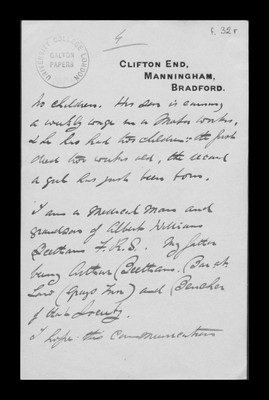 4
f. 32r
UNIVERSITY COLLEGE LONDON
GALTON
PAPERS
CLIFTON END,
MANNINGHAM,
BRADFORD.
no children. His son is earning
a weekly wage in a Motor works,
& he has had two children: the first
died two weeks old, the second
a girl has just been born.
I am a Medical Man and
grandson of Albert William
Beetham F.R.S. My father
being Arthur Beetham. (Bar. at
Law (Grays Inn) and Bencher
of that Society.
I hope this Communication